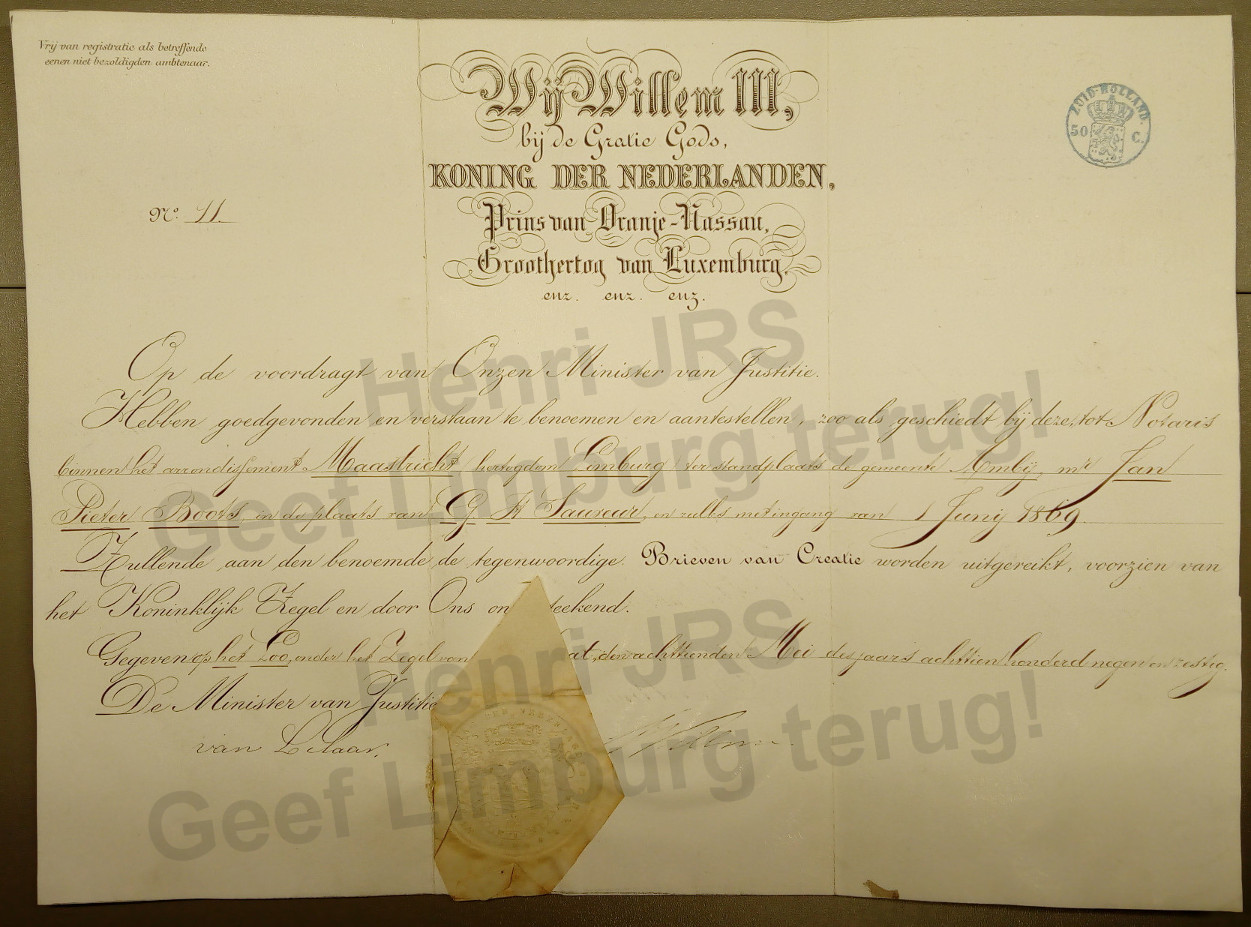 Vrij van registratie als betreffende
eenen niet bezoldigden ambtenaar.
ZUID-HOLLAND.
50 C.
Wij Willem III,
bij de Gratie Gods,
KONING DER NEDERLANDEN,
Prins van Oranje-Nassau,
Groothertog van Luxemburg,
enz. enz. enz.
No. 11.
Op de voordragt van Onzen Minister van Justitie.
Hebben goedgevonden en verstaan te benoemen en aantestellen, zoo als geschiedt bij deze, tot Notaris
binnen het arrondissement Maastricht hertogdom Limburg ter standplaats de gemeente Ambij, mr. Jan
Pieter Boots, in de plaats van G. F. en zulks met ingang van 1 Junij 1869.
Zullende aan den benoemde de tegenwoordige Brieven van Creatie worden uitgereikt, voorzien van
het Koninklijk Zegel en door Ons on teekend.
Gegeven op het Loo, onder het Zegel van at, den achttienden Mei des jaars achttien honderd negen en zestig.
De Minister van Justitie
van Lilaar,
Henri JRS
Geef Limburg terug!
Henri JRS
Geef Limburg terug!